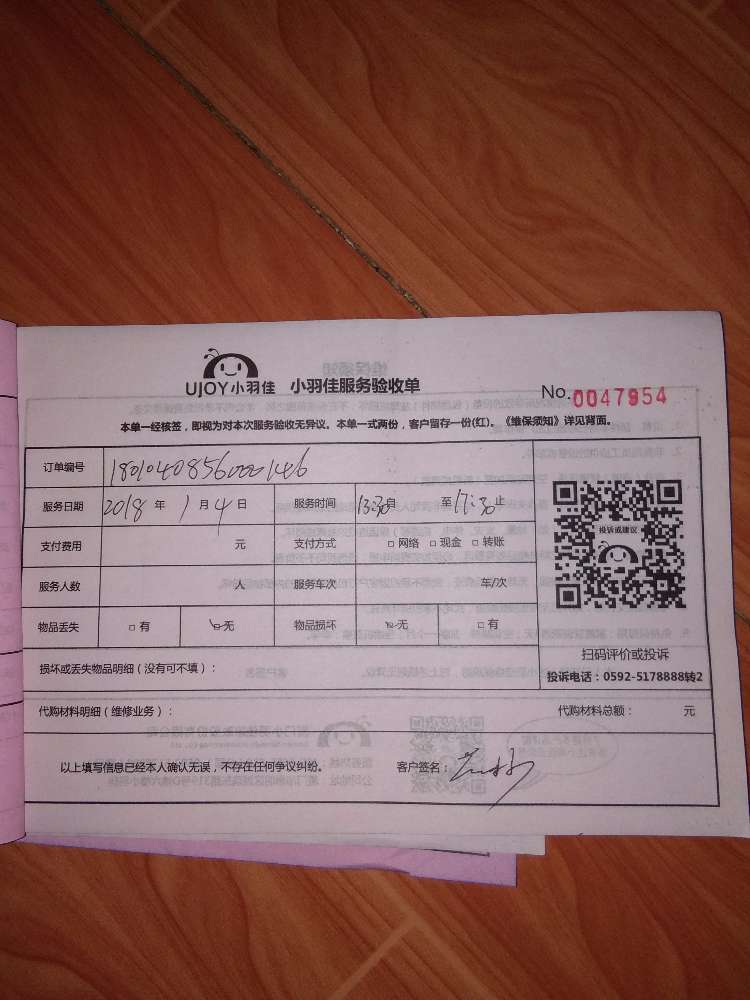 UJOY小羽佳 小羽佳服务验收单 No.0047954
本单一经核签，即视为对本次服务验收无异议。本单一式两份，客户留存一份(红)。《维保须知》详见背面。
订单编号 180104085600146
服务日期 2018年1月4日 服务时间 13:30自 至17:30止
投诉或建议
支付费用 元 支付方式 □网络 □现金 □转账
服务人数 人 服务车次 车/次
物品丢失 □有 □无 物品损坏 □无 □有
扫码评价或投诉
损坏或丢失物品明细（没有可不填）：
投诉电话：0592-5178888转2
代购材料明细（维修业务）： 代购材料总额： 元
以上填写信息已经本人确认无误，不存在任何争议纠纷。 客户签名：